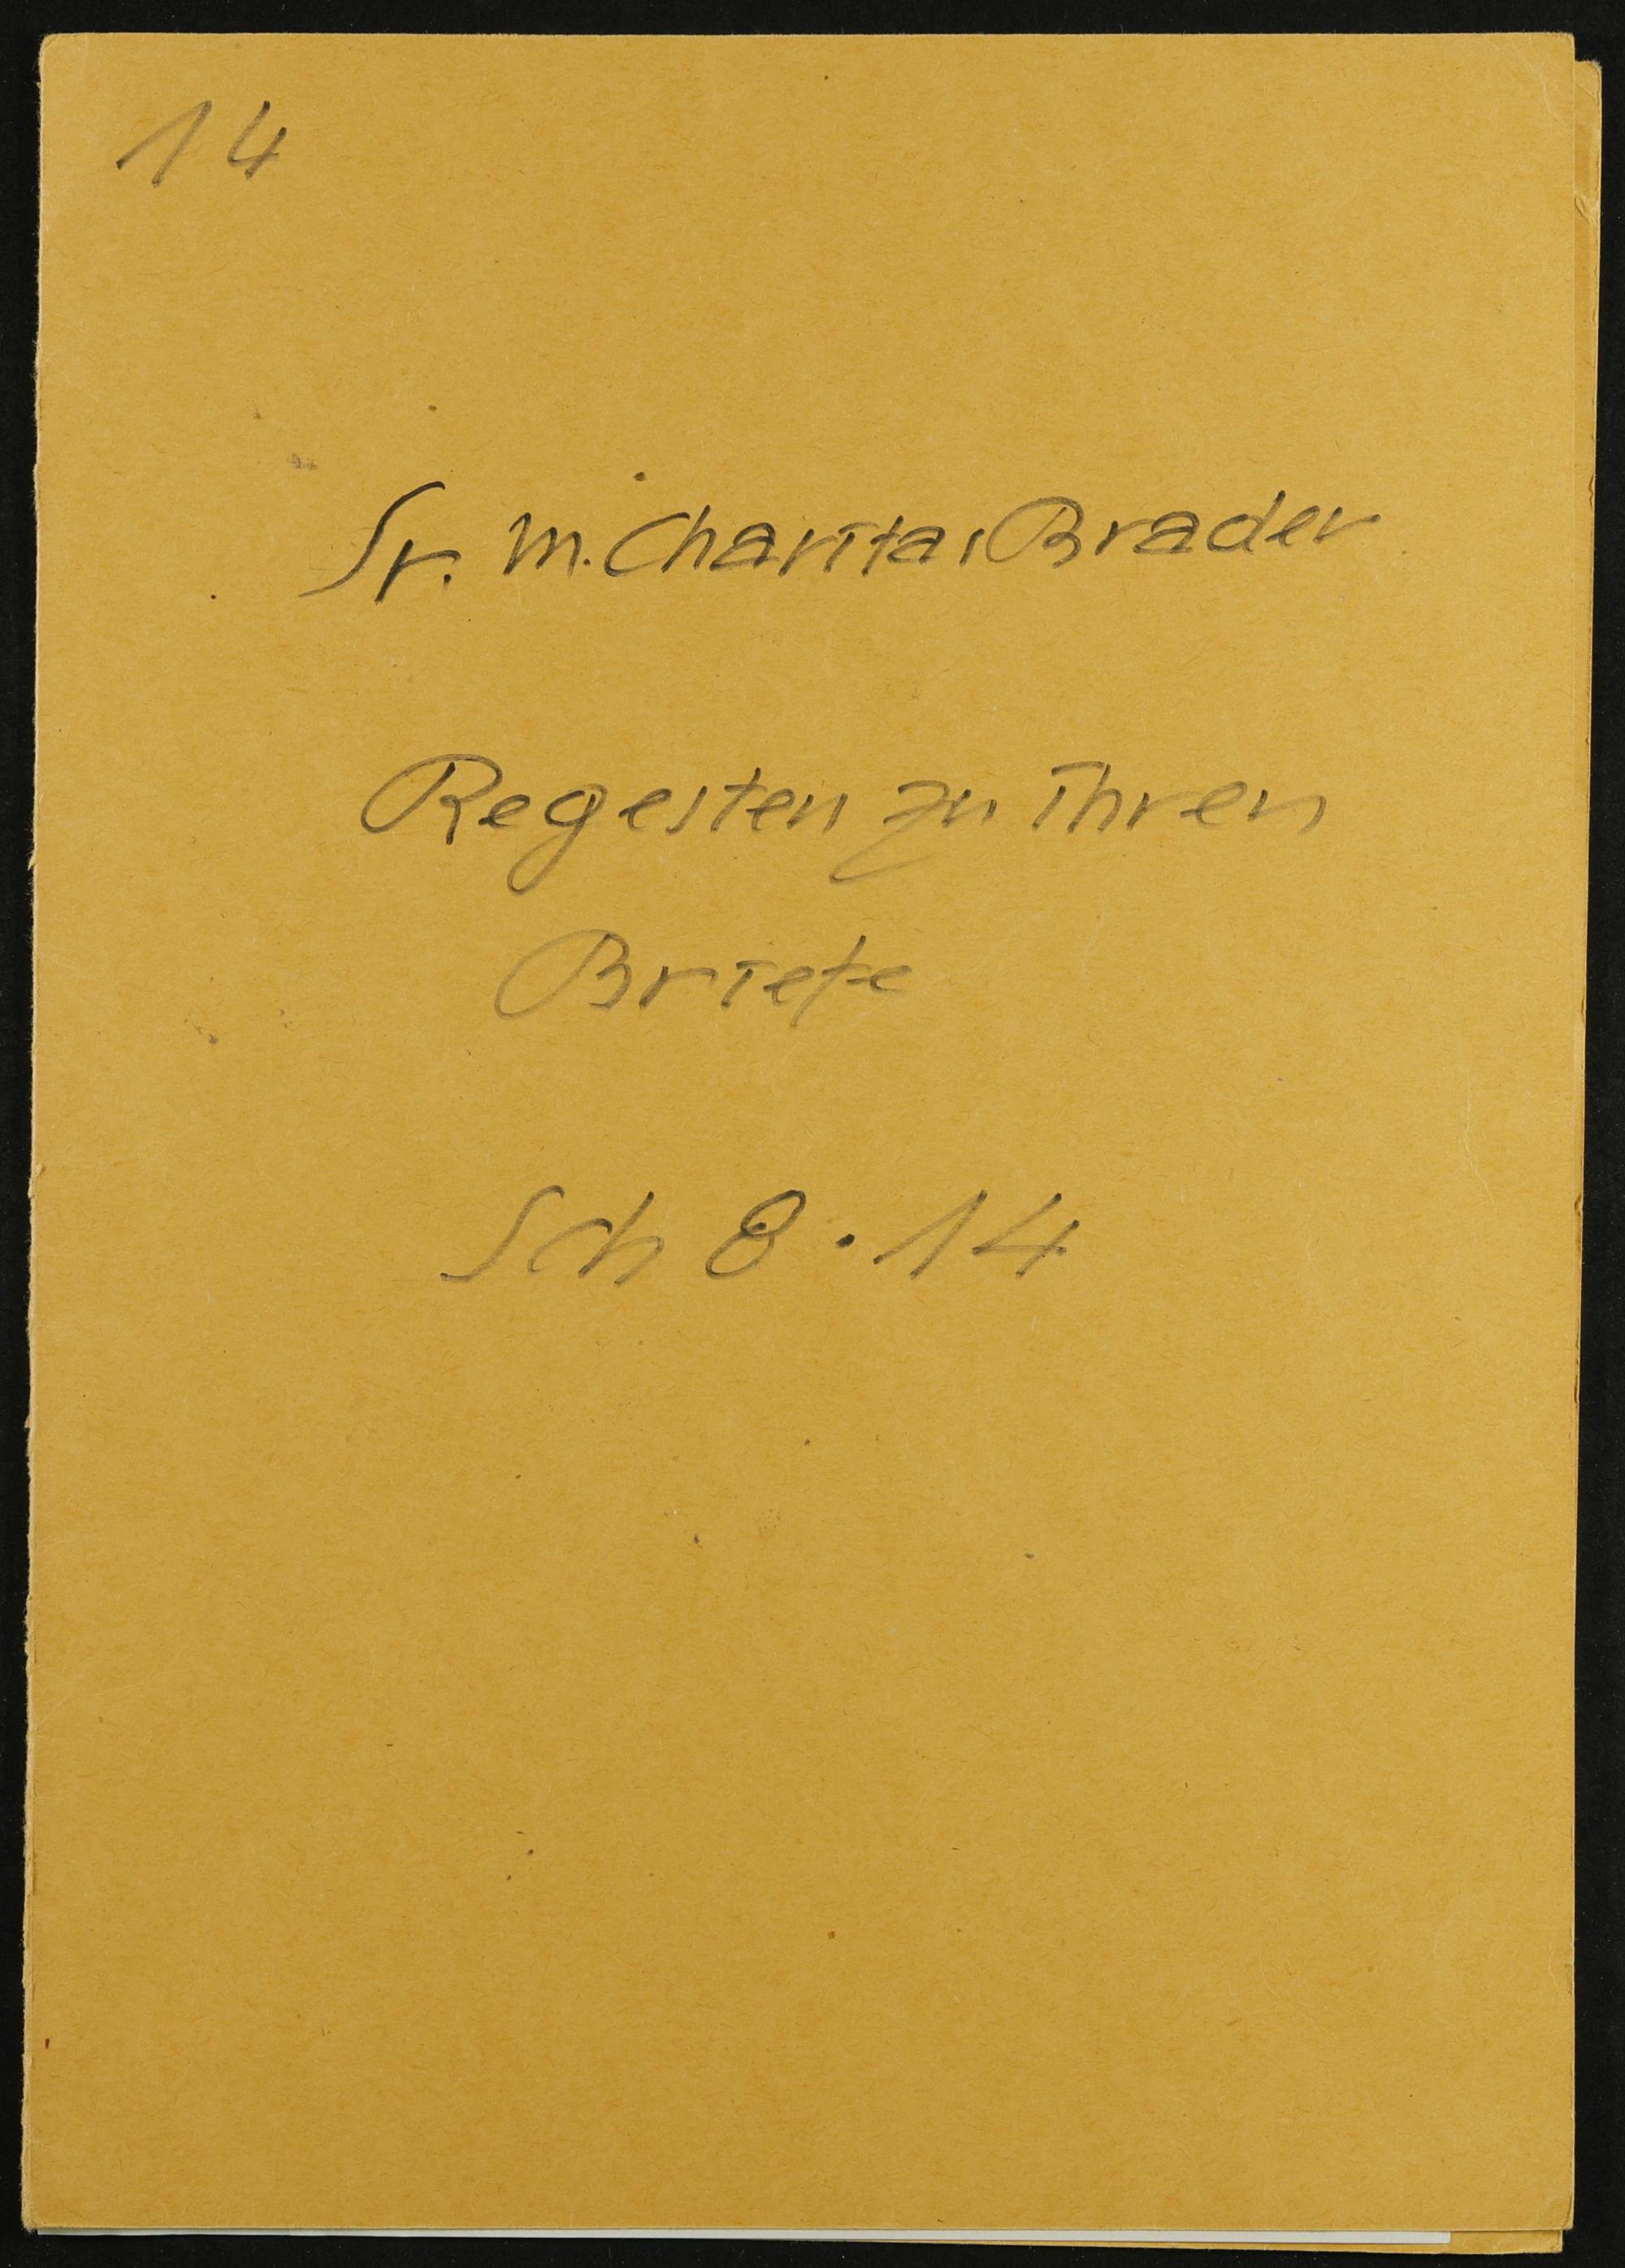 14
Sr. M. Charitas Brader
Regesten zu ihren
Briefe
Sch 8.14